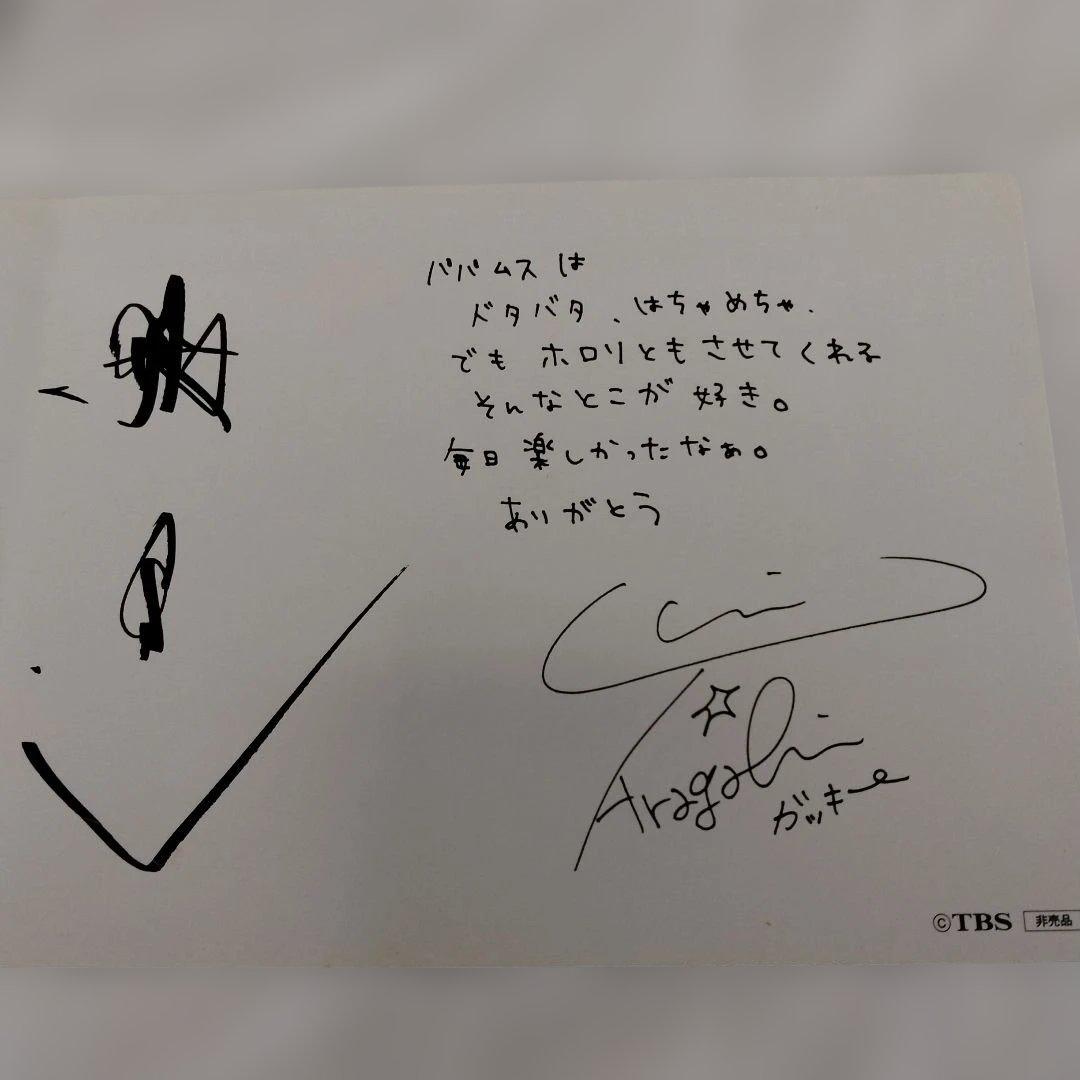 パパムスは
ドタバタ、はちゃめちゃ、
でも ホロリともさせてくれる
そんなとこが 好き。
毎日 楽しかったなぁ。
ありがとう
Aragaki
ガッキー
©TBS 非売品